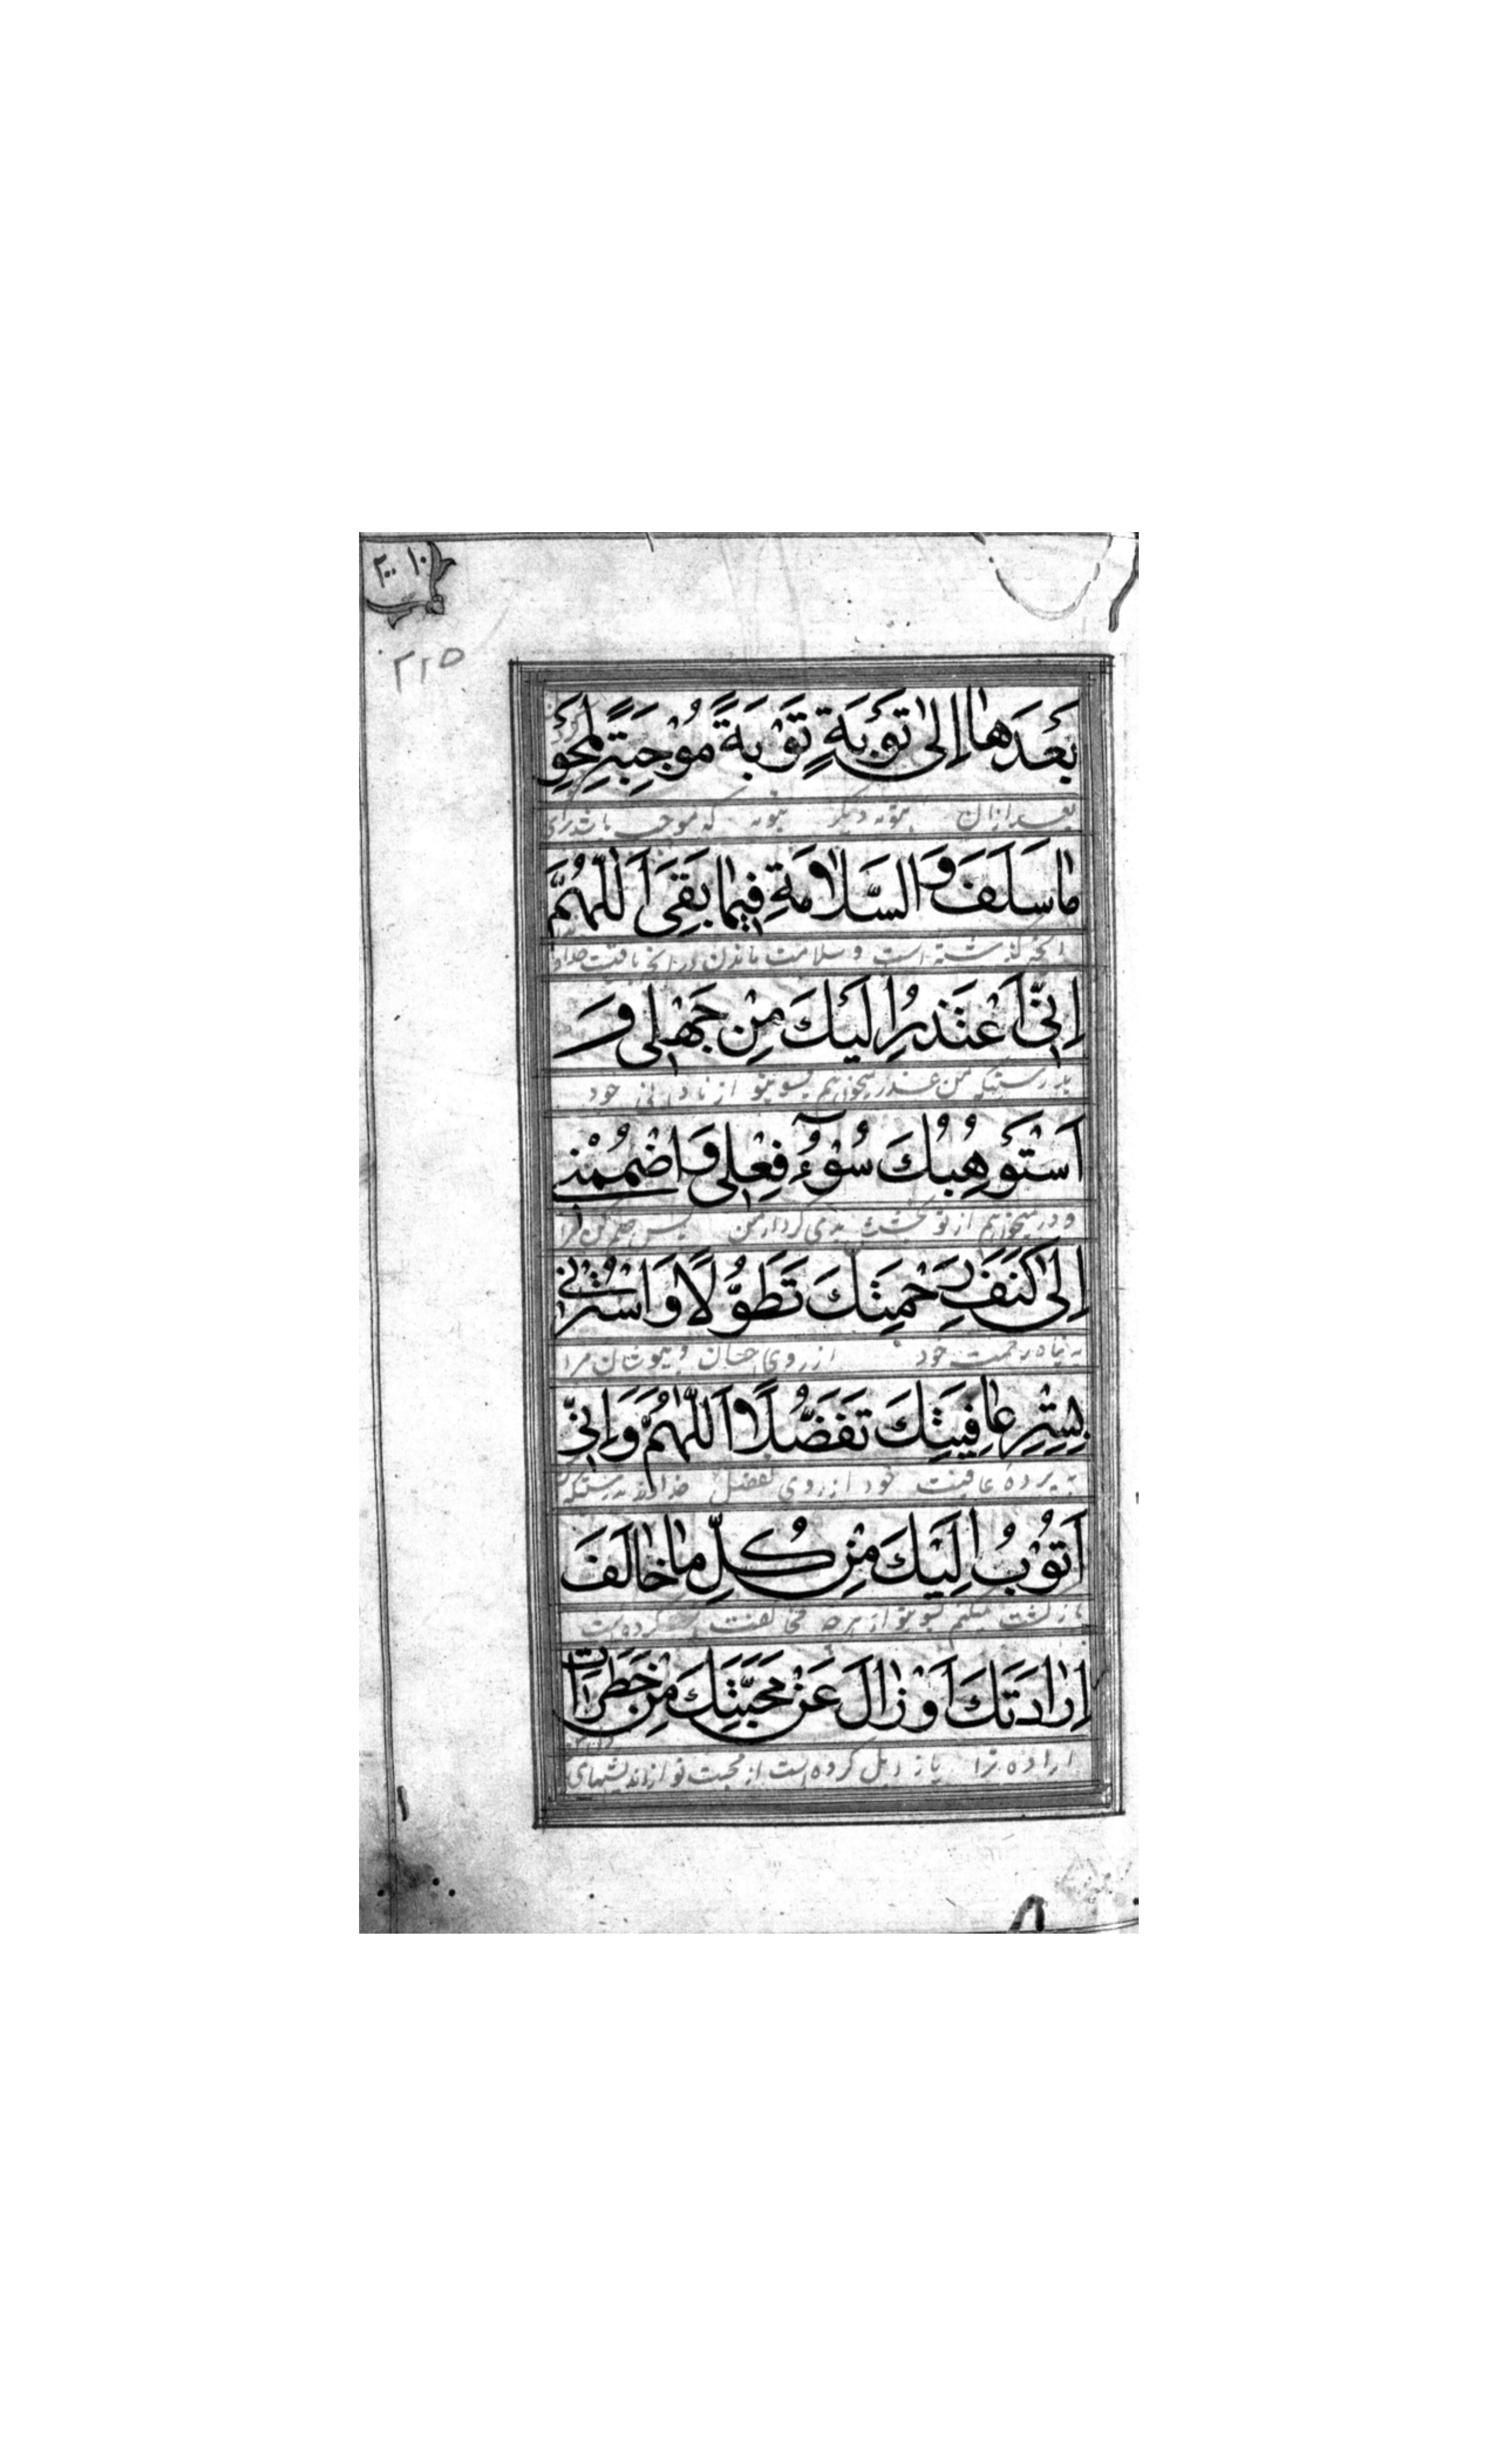 ۲۱۵
بَعْدَهٰا اِلیٰ تَوْبَةٍ تَوْبَةً مُوْجِبَةً لِمَحْوِ
بعد از آن بتوبه دیگر توبه که موجب باشد برای
مٰا سَلَفَ وَ السَّلاٰمَةِ فِیمٰا بَقِیَ اَللّٰهُمَّ
آنچه گذشته است و سلامت ماندن در آنچه باقیست خداوندا
اِنّی اَعْتَذِرُ اِلَیْكَ مِنْ جَهْلی وَ
بدرستیکه من عذر میخواهم بسوی تو از نادانی خود
اَسْتَوْهِبُكَ سُوْءَ فِعْلی وَ اضْمُمْنی
و در میخواهم از تو بخشش بدی کردار من پس ضم کن مرا
اِلیٰ كَنَفِ رَحْمَتِكَ تَطَوُّلًا وَ اسْتُرْنی
به پناه رحمت خود از روی و بپوشان مرا
بِسِتْرِ عٰافِیَتِكَ تَفَضُّلاً اَللّٰهُمَّ وَ اِنّی
به پرده عافیت خود از روی تفضل خداوندا بدرستیکه
اَتُوْبُ اِلَیْكَ مِنْ كُلِّ مٰا خٰالَفَ
بازگشت میکنم بسوی تو از هر چه مخالفت کرده است
اِرٰادَتَكَ اَوْ زٰالَ عَنْ مَحَبَّتِكَ مِنْ خَطَرٰاتِ
اراده ترا یا زایل کرده است از محبت تو از اندیشهای